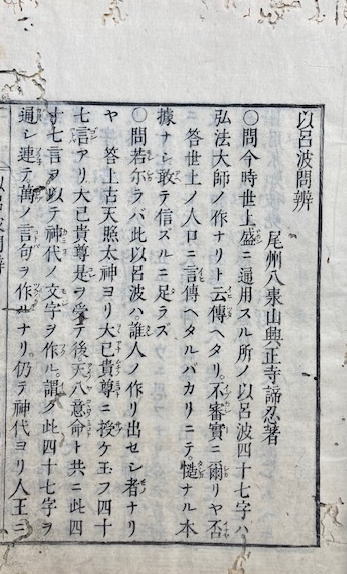 以呂波問辨
尾州八事山興正寺諦忍著
〇問今時世上盛ニ通用スル所ノ以呂波四十七字ハ
弘法大師ノ作ナリト云傳ヘタリ。不審實ニ爾リヤ否
ニ 答世上ノ人口ニ言傳ヘタルバカリニテ慥ナル本
據ナシ敢テ信スルニ足ラズ
〇問若尓ラバ此以呂波ハ誰人ノ作リ出セシ者ナリ
ヤ 答上古天照太神ヨリ大己貴尊ニ授ケ玉フ四十
七言アリ大己貴尊是ヲ受テ後天八意命ト共ニ此四
十七言ヲ以テ神代ノ文字ヲ作ル。謂ク此四十七字ヲ
通シ連テ萬ノ言句ヲ作ルナリ。仍テ神代ヨリ人王ニ